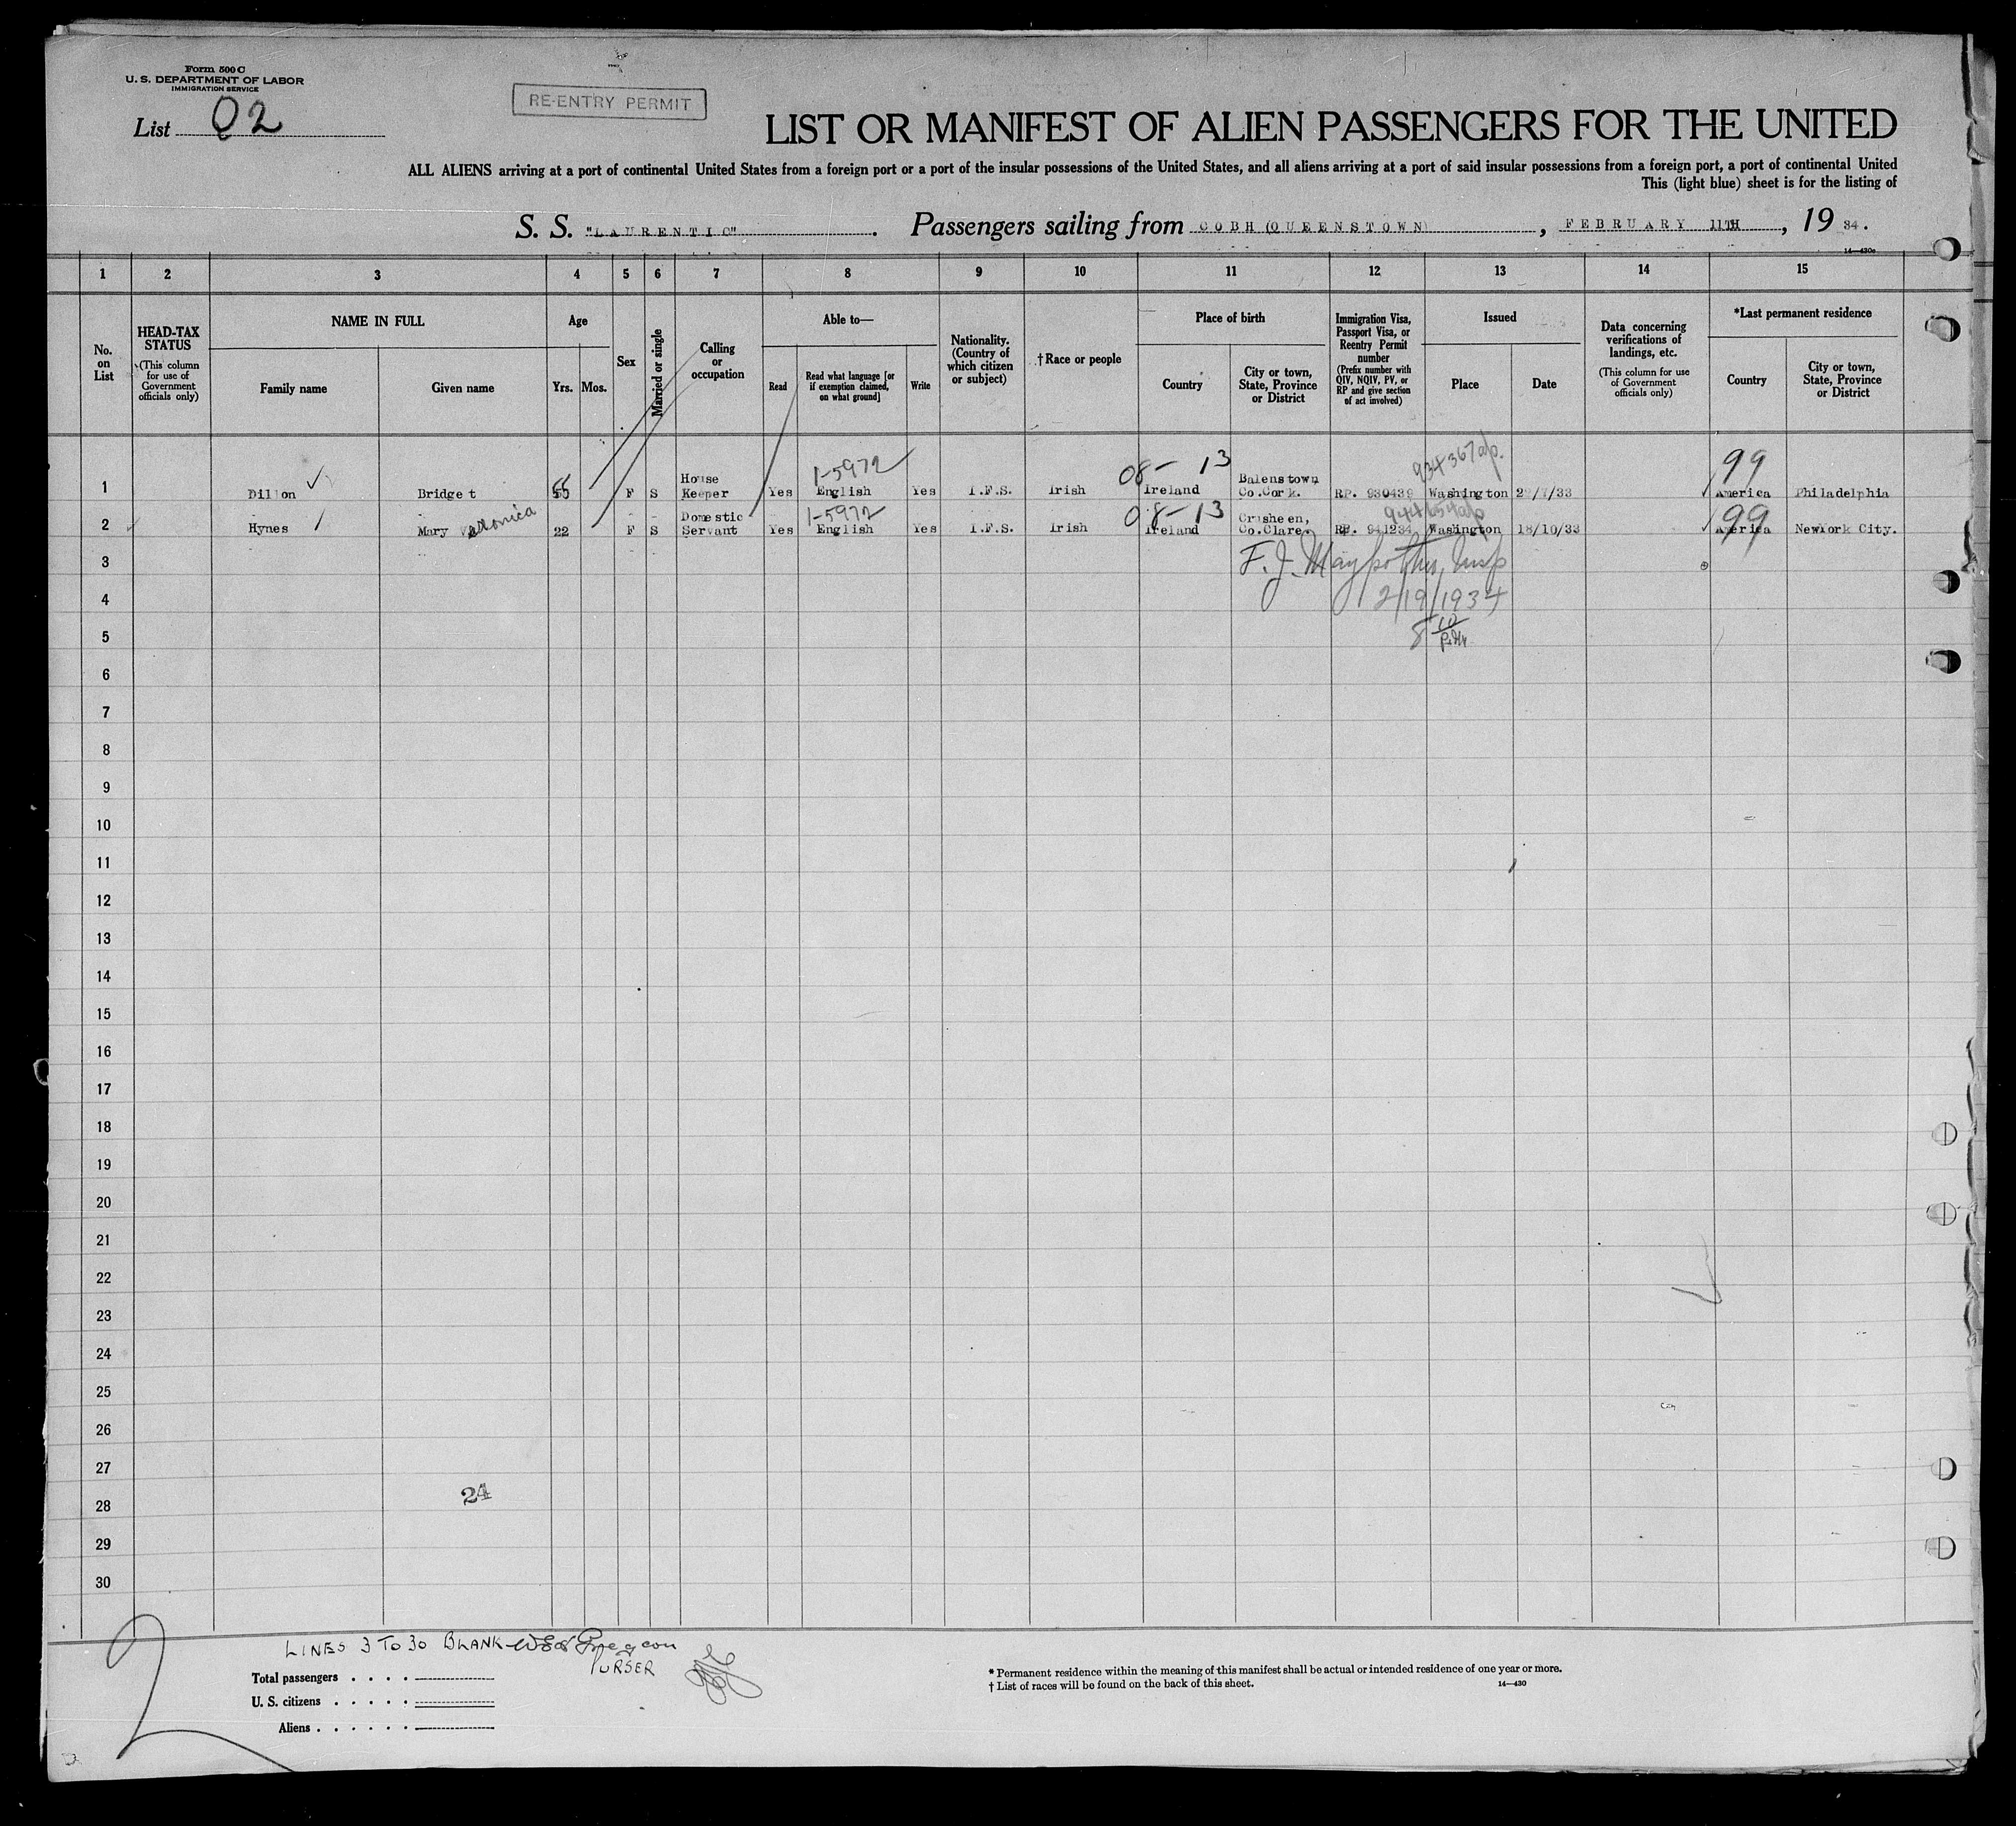 Form 500 C
U. S. DEPARTMENT OF LABOR
IMMIGRATION SERVICE
List 02
RE-ENTRY PERMIT
LIST OR MANIFEST OF ALIEN PASSENGERS FOR THE UNITED
ALL ALIENS arriving at a port of continental United States from a foreign port or a port of the insular possessions of the United States, and all aliens arriving at a port of said insular possessions from a foreign port, a port of continental United
This (light blue) sheet is for the listing of
S. S. "LAURENTIC". Passengers sailing from COBH (QUEENSTOWN), FEBRUARY 11TH, 19 34.
14—430a
1 2 3 4 5 6 7 8 9 10 11 12 13 14 15
No. on List
HEAD-TAX STATUS
(This column for use of Government officials only)
NAME IN FULL
Family name
Given name
Age
Yrs. Mos.
Sex
Married or single
Calling or occupation
Able to—
Read
Read what language [or if exemption claimed, on what ground]
Write
Nationality. (Country of which citizen or subject)
†Race or people
Place of birth
Country
City or town, State, Province or District
Immigration Visa, Passport Visa, or Reentry Permit number
(Prefix number with QIV, NQIV, PV, or RP and give section of act involved)
Issued
Place
Date
Data concerning verifications of landings, etc.
(This column for use of Government officials only)
*Last permanent residence
Country
City or town, State, Province or District
1-5972 08- 13 934367 99
1 Dillon Bridget F S House Keeper Yes English Yes I.F.S. Irish Ireland Balenstown Co.Cork. RP. 930439 Washington /7/33 America Philadelphia
1-5972 08-13 99
2 Hynes Mary Veronica 22 F S Domestic Servant Yes English Yes I.F.S. Irish Ireland Crusheen, Co.Clare RP. 941234 Washington 18/10/33 America NewYork City.
3 F. J. Insp
4 2/19/1934
5
6
7
8
9
10
11
12
13
14
15
16
17
18
19
20
21
22
23
24
25
26
27
24
28
29
30
2
LINES 3 TO 30 BLANK
PURSER
Total passengers
U. S. citizens
Aliens
* Permanent residence within the meaning of this manifest shall be actual or intended residence of one year or more.
† List of races will be found on the back of this sheet. 14—430